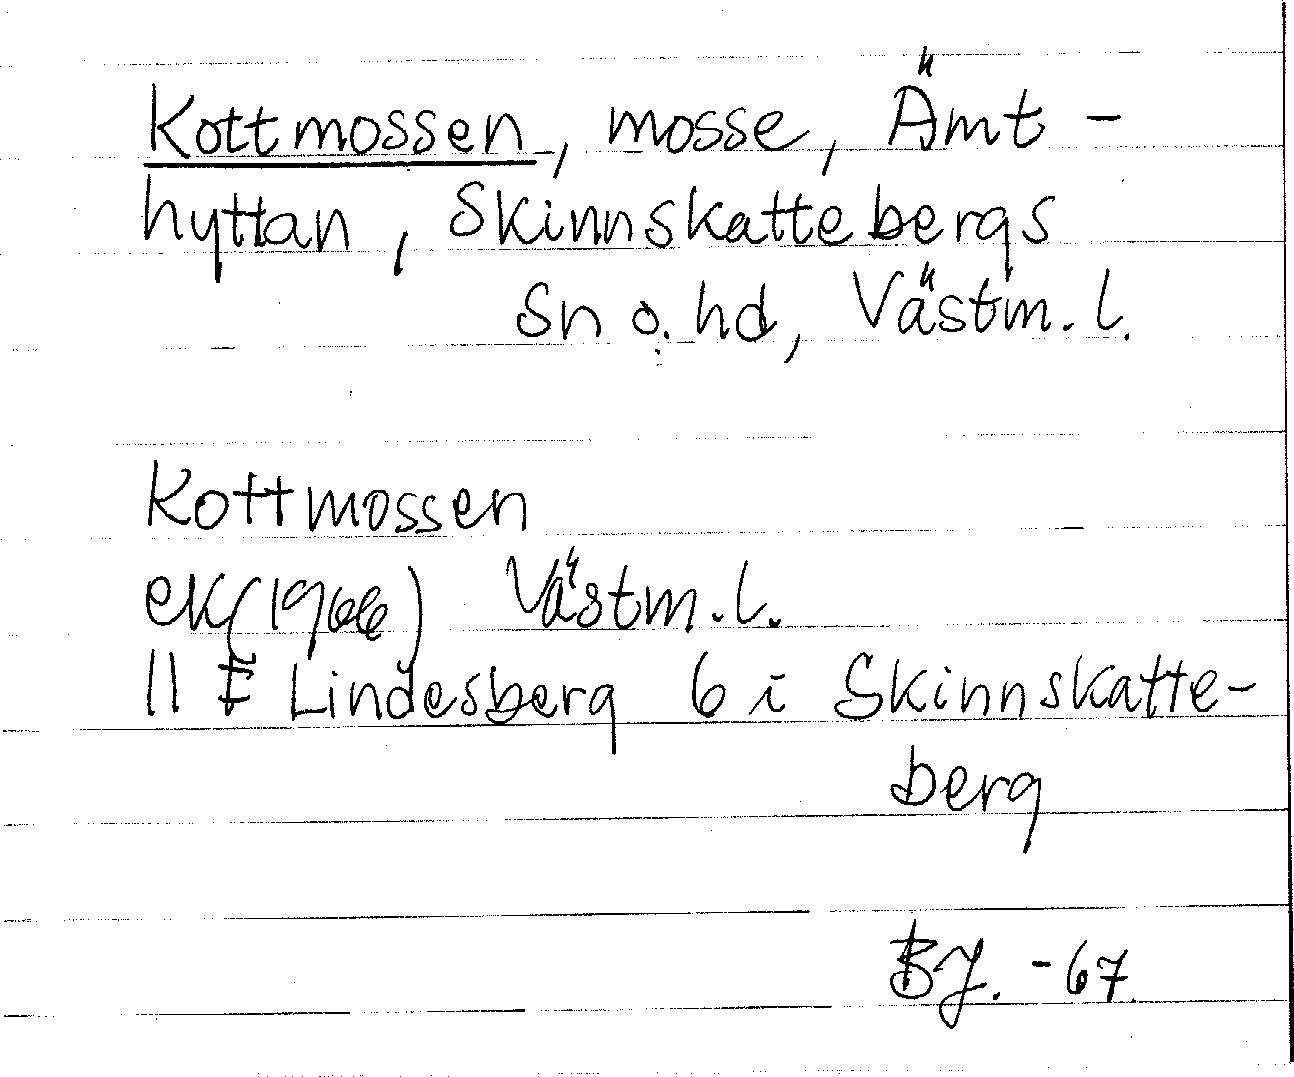 Kottmossen, mosse, Ämt-
hyttan, Skinnskattebergs
Sn o. hd, Västm. l.
Kottmossen
ek(1966) Västm. l.
11 F Lindesberg 6 i Skinnskatte-
berg
BJ. -67.